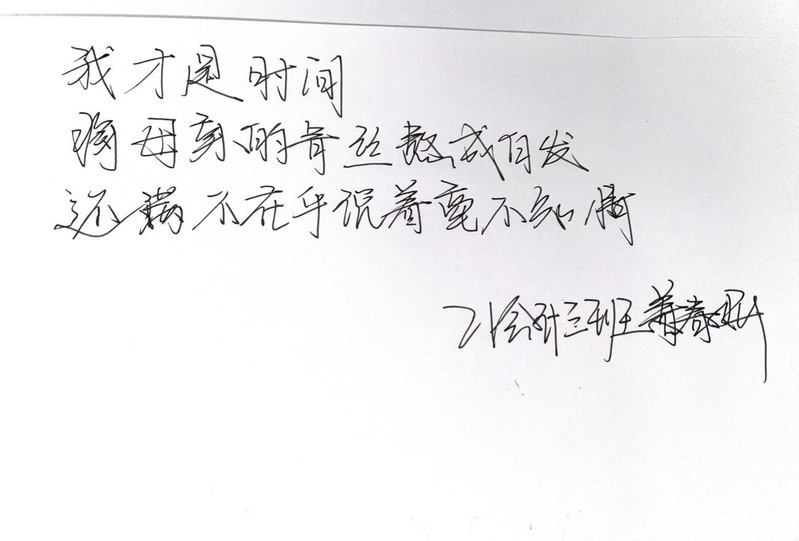 我才是时间
将母亲的青丝熬成白发
还满不在乎说着毫不知情
21会计三班